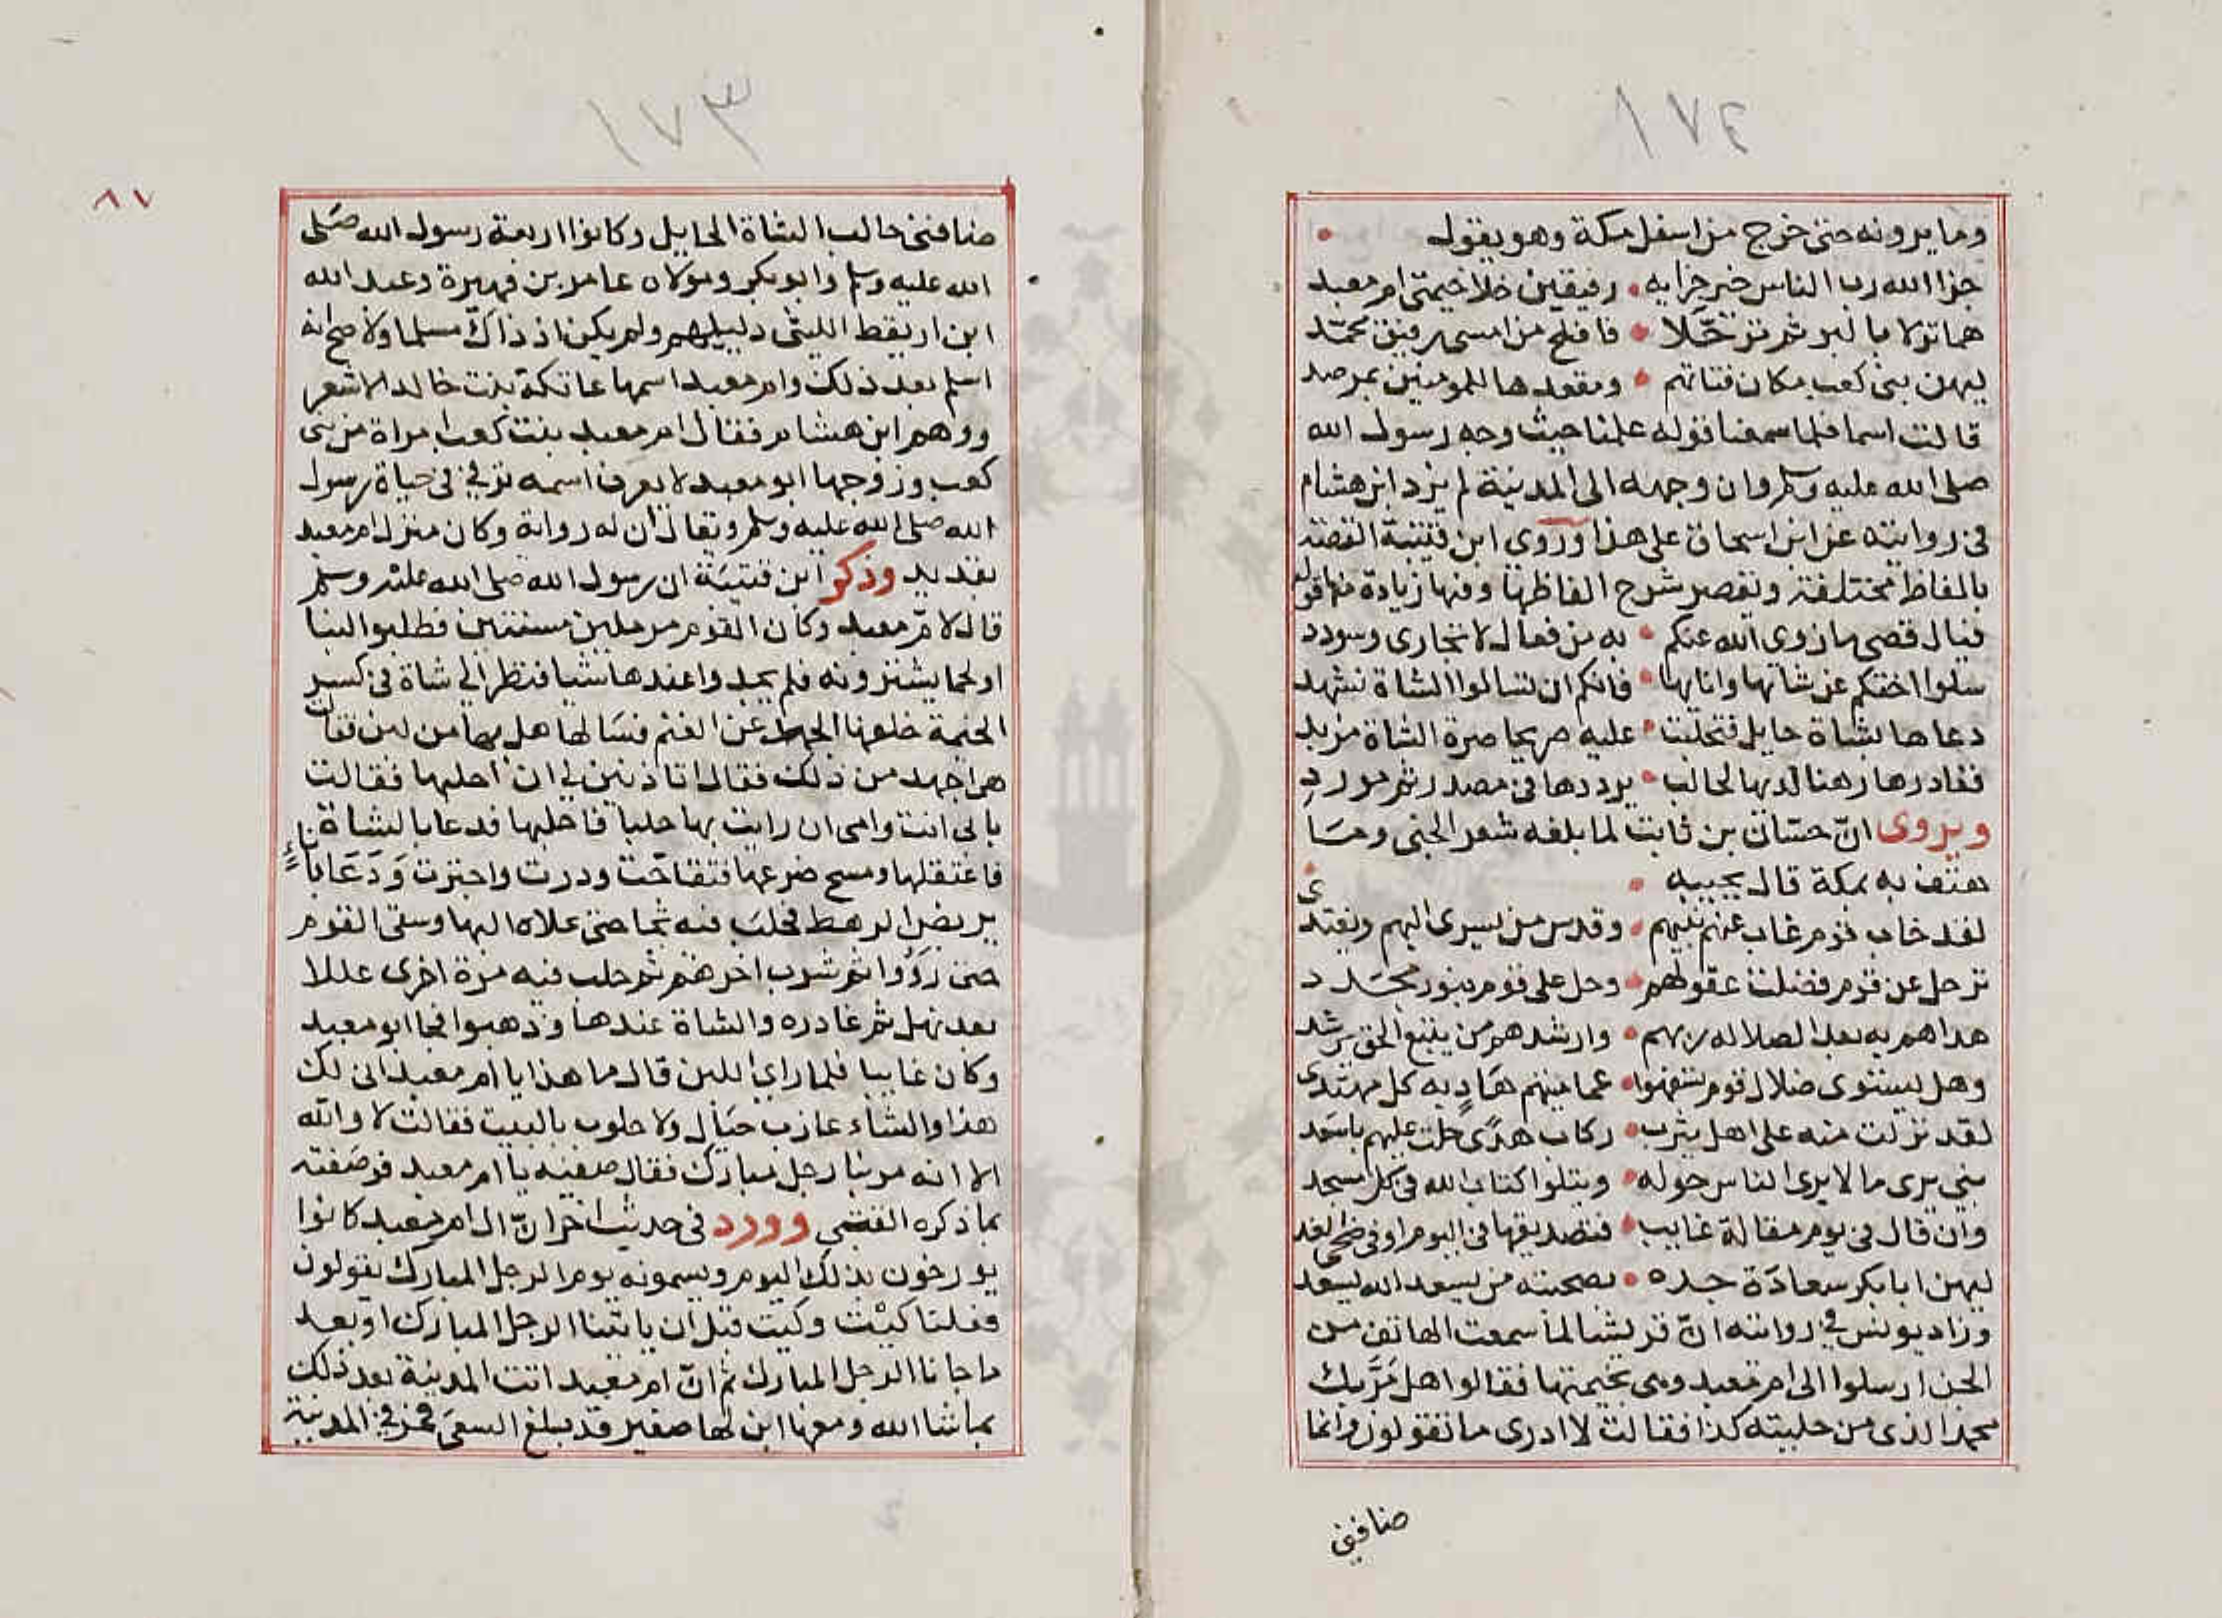 ١٧٤
وما يرونه حتى خرج من اسفل مكة وهو يقول
جزا الله رب الناس خير جزايه • رفيقين حلا خيمتي ام معبد
هما نزلا بالبر ثم ترحلا • فافلح من امسى رفيق محمد
ليهن بنى كعب مكان فتاتهم • ومقعدها للمومنين بمرصد
قالت اسما فلما سمعنا قوله علمنا حيث وجه رسول الله
صلى الله عليه وسلم وان وجهه الى المدينة لم يزد ابن هشام
فى روايته عن ابن اسحاق على هذا وروى ابن قتيبة القصة
بالفاظ مختلفة وتقصر شرح الفاظها وفيها زيادة منها قوله
فيال قصى ما زوى الله عنكم • به من فعال لا تجارى وسودد
سلوا اختكم عن شاتها وانايها • فانكم ان تسالوا الشاة تشهد
دعاها بشاة حايل فتحلبت • عليه صريحا صرة الشاة مزبد
فغادرها رهنا لديها لحالب • يرددها فى مصدر ثم مورد
ويروى انّ حسّان بن ثابت لما بلغه شعر الجنى وما
هتف به بمكة قال يجيبه •
لقد خاب قوم غاب عنهم نبيهم • وقدس من يسرى اليهم ويغتدى
ترحل عن قوم فضلت عقولهم • وحل على قوم بنور مجدد
هداهم به بعد الضلاله ربهم • وارشدهم من يتبع الحق يرشد
وهل يستوى ضلال قوم تسفهوا • عمايتهم هادٍ به كل مهتدى
لقد نزلت منه على اهل يثرب • ركاب هدًى حلت عليهم باسعد
نبي يرى ما لا يرى الناس حوله • ويتلوا كتاب الله فى كل مسجد
وان قال فى يوم مقالة غايب • فتصديقها فى اليوم او فى ضحى لغد
ليهن ابا بكر سعادة جده • بصحبته من يسعد الله يسعد
وزاد يونس فى روايته انّ قريشا لما سمعت الهاتف من
الجن ارسلوا الى ام معبد وهى بخيمتها فقالوا هل مرّ بك
محمد الذى من حليته كذا فقالت لا ادرى ما تقولون وانما
ضافنى
١٧٣
٨٧
ضافنى حالب الشاة الحايل وكانوا اربعة رسول الله صلى
الله عليه وسلم وابو بكر ومولاه عامر بن فهيرة وعبد الله
ابن اريقط الليثى دليلهم ولم يكن اذ ذاك مسلما ولا صح انه
اسلم بعد ذلك وام معبد اسمها عاتكة بنت خالد الاشعر
ووهم ابن هشام فقال ام معبد بنت كعب امراة من بنى
كعب وزوجها ابو معبد لا يعرف اسمه توفى فى حياة رسول
الله صلى الله عليه وسلم ويقال ان له رواية وكان منزل ام معبد
بقديد وذكر ابن قتيبة ان رسول الله صلى الله عليه وسلم
قال لامّ معبد وكان القوم مرملين مسنتين فطلبوا لبنا
او لحما يشترونه فلم يجدوا عندها شيا فنظر الى شاة فى كسر
الخيمة خلفها الجهد عن الغنم فسالها هل بها من لبن فقالت
هى اجهد من ذلك فقال اتاذنين لى ان احلبها فقالت
بابى انت وامى ان رايت بها حلبا فاحلبها فدعا بالشاة
فاعتقلها ومسح ضرعها فتفاجّت ودرت واجترت وَدَعَا باناءٍ
يربض الرهط فحلب فيه ثجا حتى علاه البها وسقى القوم
حتى رووا ثم شرب اخرهم ثم حلب فيه مرة اخرى عللا
بعد نهل ثم غادره والشاة عندها وذهبوا فجا ابو معبد
وكان غايبا فلما راى اللبن قال ما هذا يا ام معبد انى لك
هذا والشاء عازب حيال ولا حلوب بالبيت فقالت لا والله
الا انه مر بنا رجل مبارك فقال صفيه يا ام معبد فوصفته
بما ذكره القتبى وورد فى حديث اخر انّ ال ام معبد كانوا
يورخون بذلك اليوم ويسمونه يوم الرجل المبارك يقولون
فعلنا كيت وكيت قبل ان ياتينا الرجل المبارك او بعد
ما جانا الرجل المبارك ثم انّ ام معبد اتت المدينة بعد ذلك
بما شا الله ومعها ابن لها صغير قد بلغ السعى فمر فى المدينة